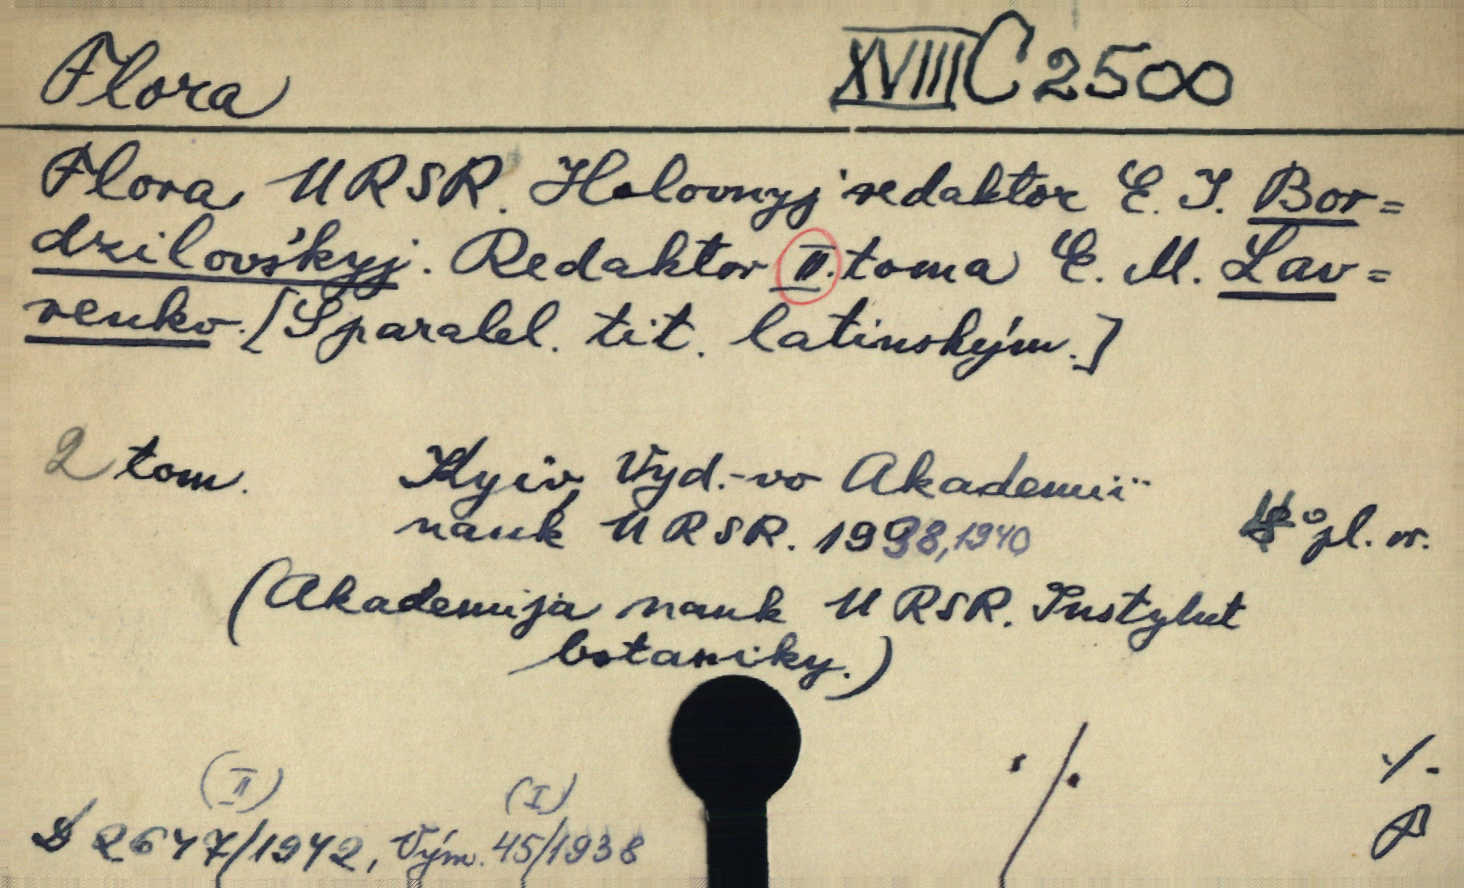 Flora
XVIII C 2500
Flora URSR. Holovnyj redaktor E. I. Bor=
dzilovs'kyj. Redaktor II. toma E. M. Lav=
renko. [S paralel. tit. latinským.]
2 tom. Kyiv, Vyd.-vo Akademiï
nauk URSR. 1938, 1940 8° pl. vr.
(Akademija nauk URSR. Instytut
botaniky.)
(II) (I)
D 2647/1942, Vým. 45/1938